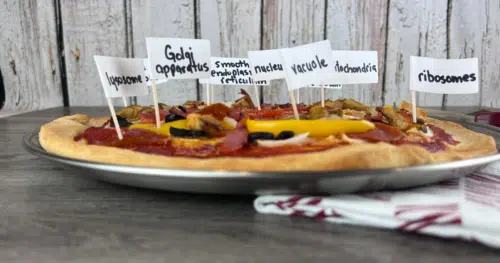 lysosome
Golgi
apparatus
smooth
endoplasmic
reticulum
nucleu
vacuole
itochondria
ribosomes